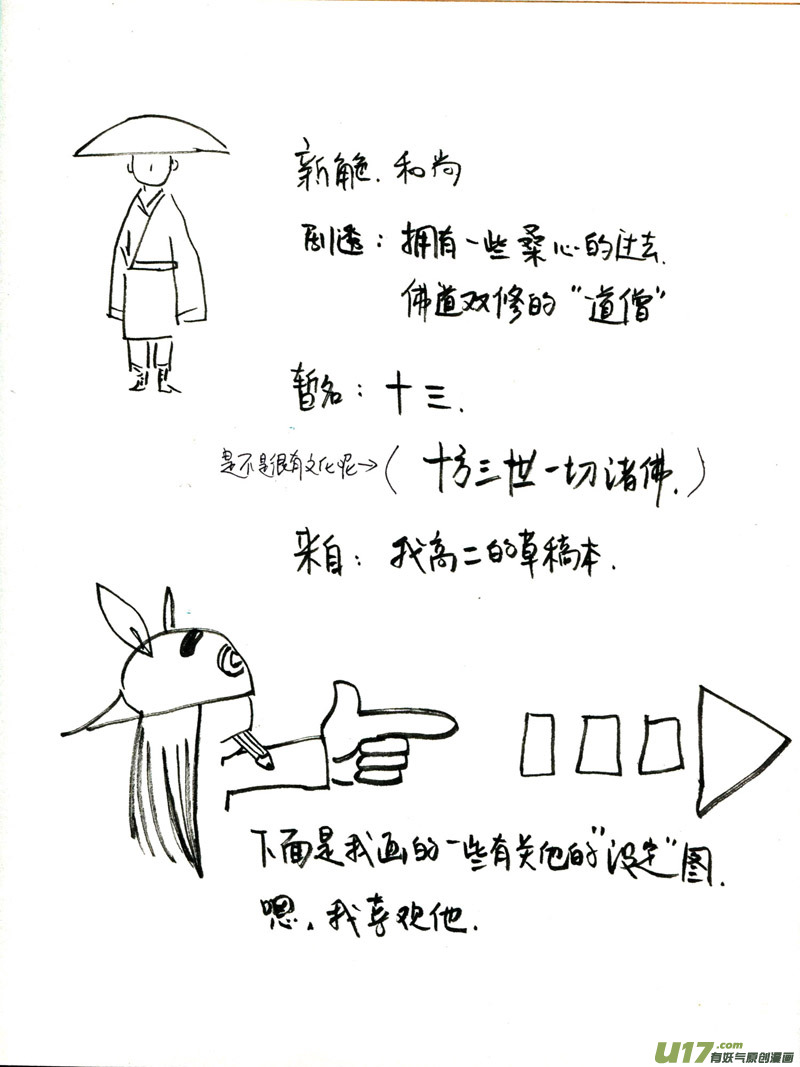 新角色.和尚
剧透：拥有一些桑心的过去.
佛道双修的“道僧”
暂名：十三.
是不是很有文化呢→（十方三世一切诸佛.）
来自：我高二的草稿本.
下面是我画的一些有关他的“设定”图.
嗯，我喜欢他.
U17.com
有妖气原创漫画